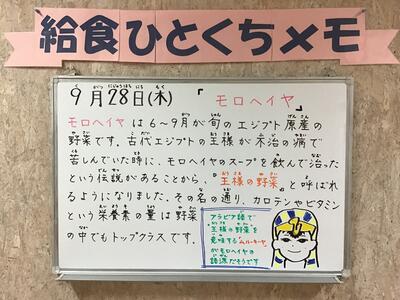 給食ひとくちメモ
9月28日(木) 「モロヘイヤ
モロヘイヤは6~9月が旬のエジプト原産の
野菜です。古代エジプトの王様が不治の病で
苦しんでいた時に、モロヘイヤのスープを飲んで治った
という伝説があることから、『王様の野菜』と呼ばれ
るようになりました。その名の通り、カロテンやビタミン
という栄養素の量は野菜
の中でもトップクラスです。
アラビア語で
王様の野菜を
意味するムルーキーヤ
がモロヘイヤの
語源だそうです